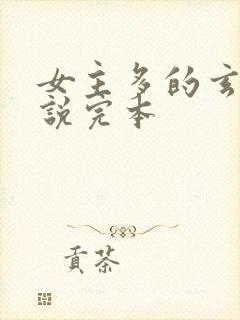 女主多的玄
說完本
貢茶